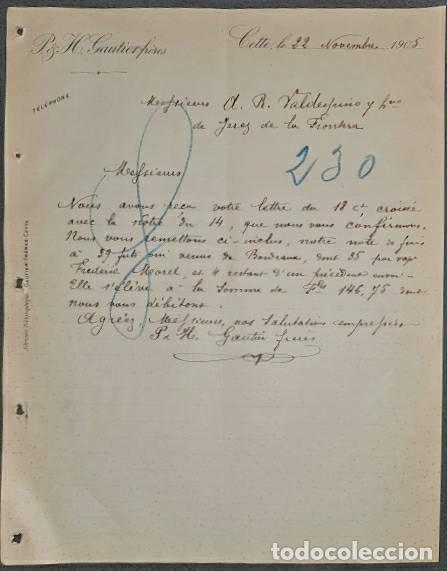 P. & H. Gautier frères
Cette, le 22 Novembre 1905
TÉLÉPHONE
Messieurs A. R. Valdespino y hno
de Jerez de la Frontera
230
Messieurs
Nous avons reçu votre lettre du 18 ct croisée
avec la nôtre du 14, que nous vous confirmons.
Nous vous remettons ci-inclus, notre note de frais
à 39 futs venus de Bordeaux, dont 35 par vap.
Frédéric Morel, et 4 restant d'un précédent envoi
Elle s'élève à la somme de Frs 146,75 dont
nous vous débitons.
Agréez, Messieurs, nos salutations empressées
P. & H. Gautier frères
Adresse Télégraphique: GAUTIER FRÈRES CETTE
todocoleccion.net